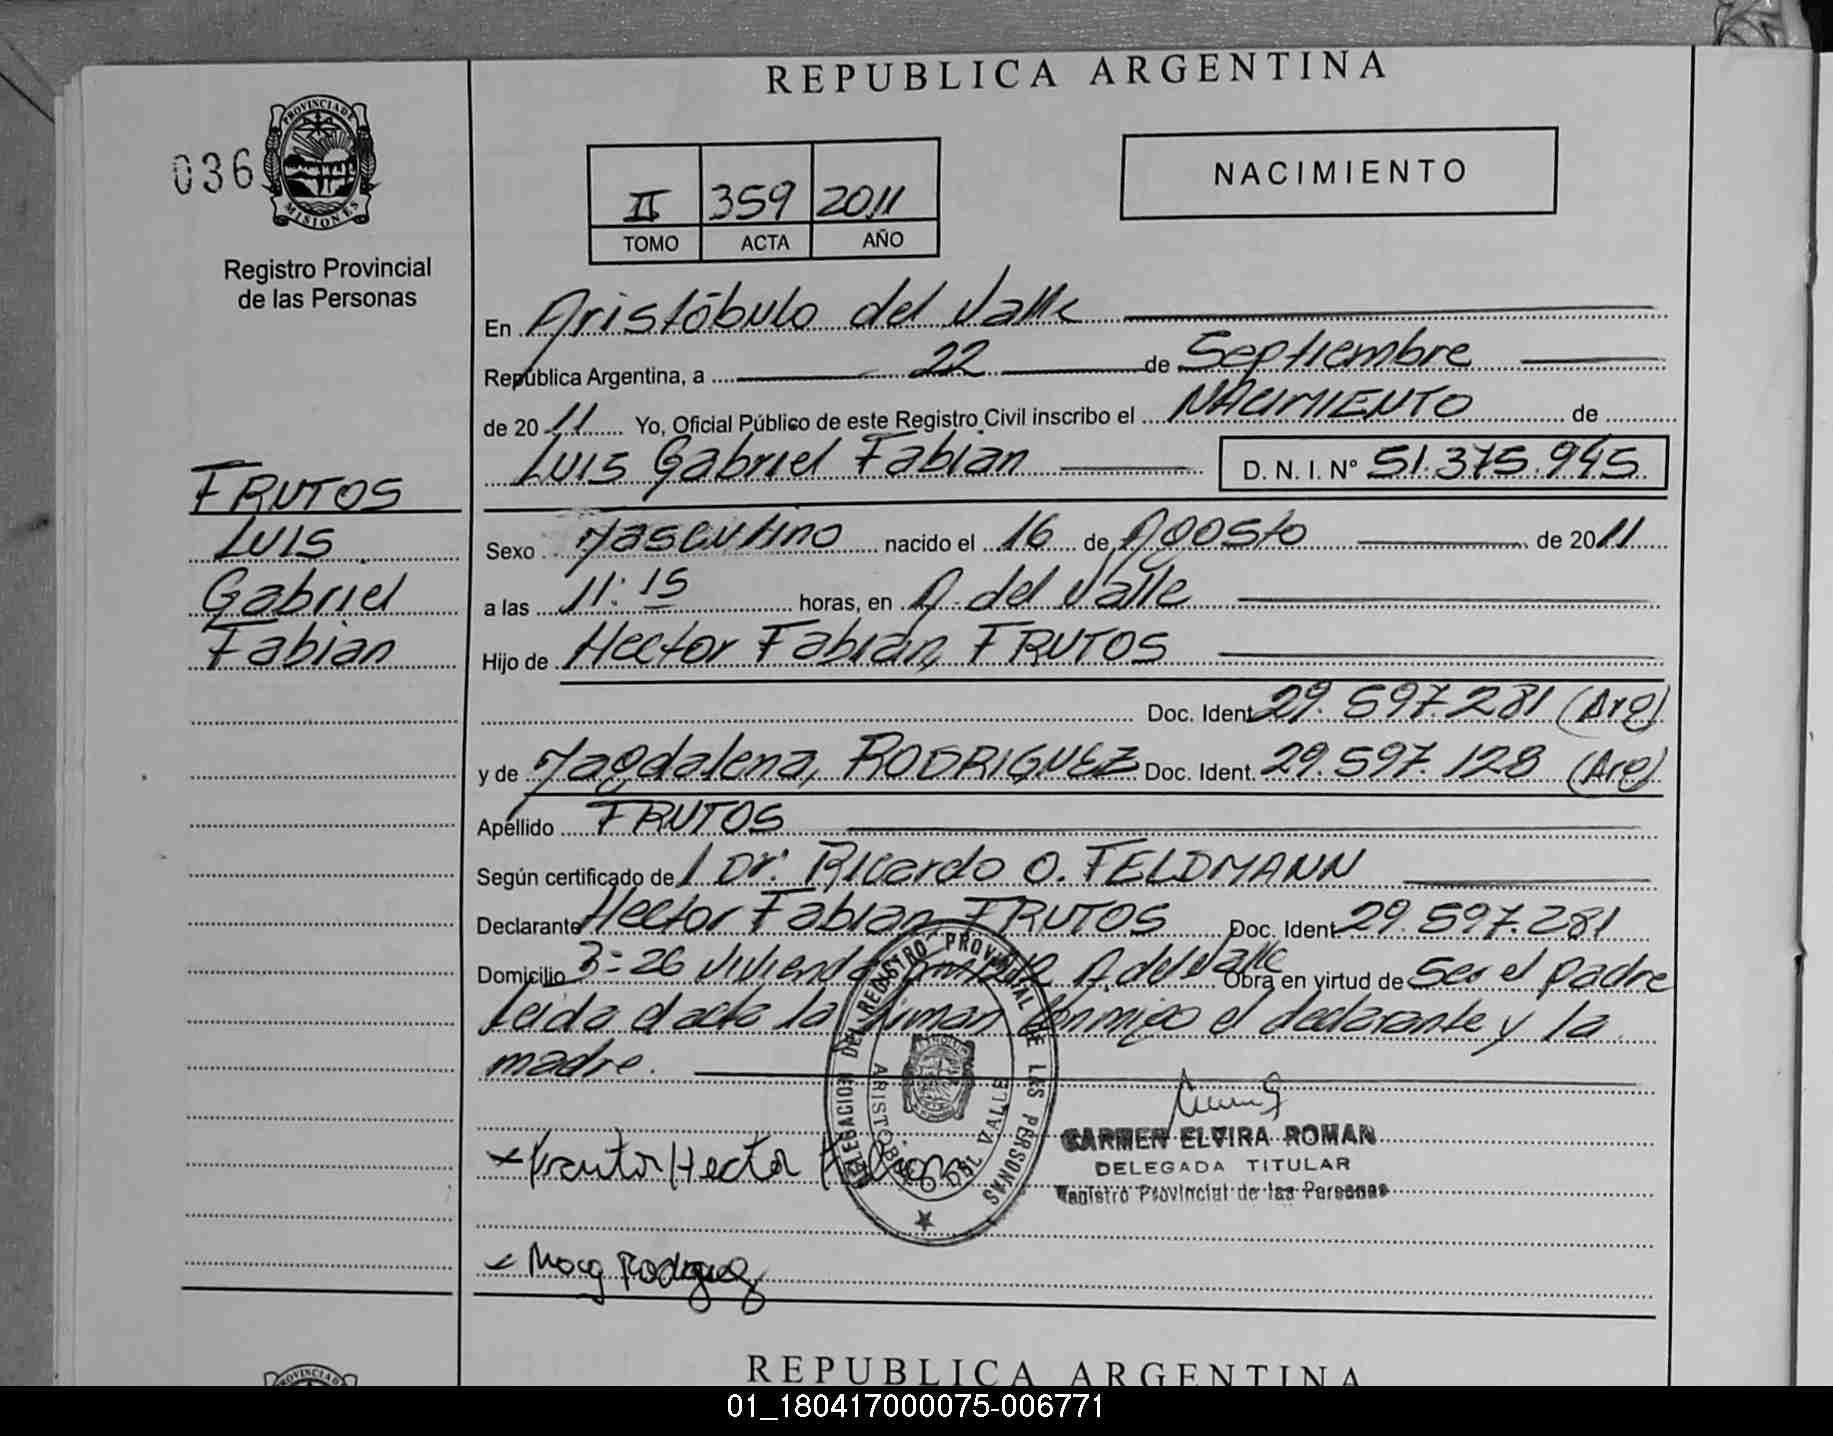 REPUBLICA ARGENTINA
036
PROVINCIA DE MISIONES
Registro Provincial
de las Personas
II 359 2011
TOMO ACTA AÑO
NACIMIENTO
En Aristóbulo del Valle
República Argentina, a 22 de Septiembre
de 2011 Yo, Oficial Público de este Registro Civil inscribo el NACIMIENTO de
Luis Gabriel Fabian D. N. I. Nº 51.375.945
FRUTOS
Luis
Gabriel
Fabian
Sexo Masculino nacido el 16 de Agosto de 2011
a las 11:15 horas, en A. del Valle
Hijo de Hector Fabian, FRUTOS
Doc. Ident. 29.597.281 (Arg)
y de Magdalena, RODRIGUEZ Doc. Ident. 29.597.128 (Arg)
Apellido FRUTOS
Según certificado del Dr. Ricardo O. FELDMANN
Declarante Hector Fabian FRUTOS Doc. Ident. 29.597.281
Domicilio 3-26 Vivienda A. del Valle Obra en virtud de Ser el padre
Leida el acta la firman conmigo el declarante y la
madre.
DELEGACION DEL REGISTRO PROVINCIAL DE LAS PERSONAS
ARISTOBULO DEL VALLE
CARMEN ELVIRA ROMAN
DELEGADA TITULAR
Registro Provincial de las Personas
Hector
Rodriguez
PROVINCIA D
REPUBLICA ARGENTINA
01_180417000075-006771